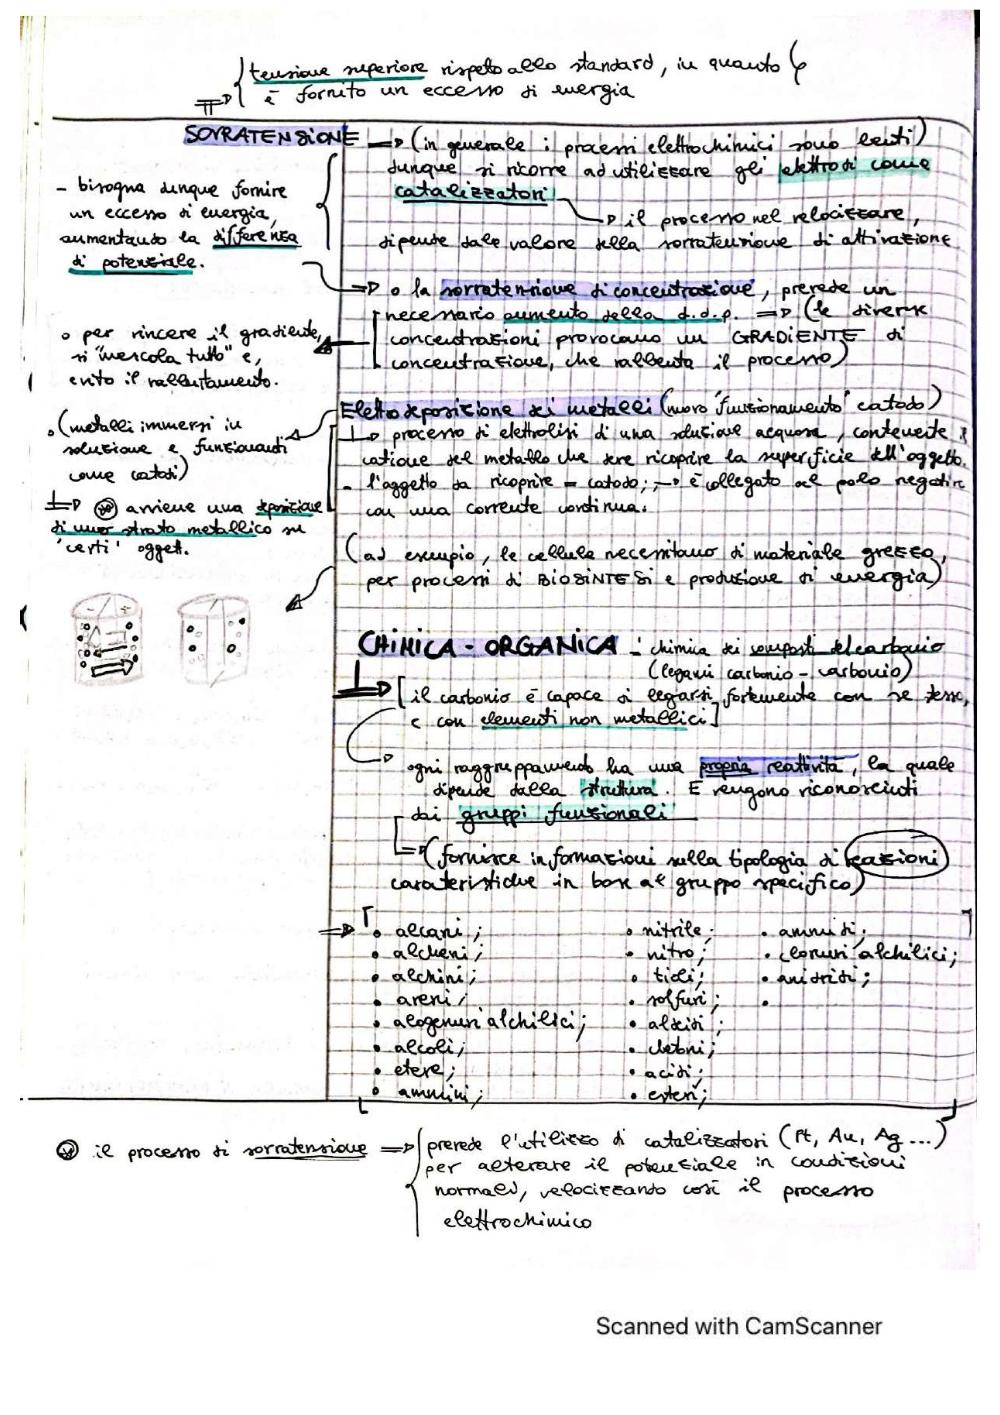 tensione superiore rispetto allo standard, in quanto
è fornito un eccesso di energia
SOVRATENSIONE
(in generale i processi elettrochimici sono lenti)
dunque si ricorre ad utilizzare gli elettrodi come
catalizzatori
il processo nel velocizzare,
dipende dale valore della sovratensione di attivazione
- bisogna dunque fornire
un eccesso di energia,
aumentando la differenza
di potenziale.
o la sovratensione di concentrazione, prevede un
necessario aumento della d.d.p. => (le diverse
concentrazioni provocano un GRADIENTE di
concentrazione, che rallenta il processo)
o per vincere il gradiente,
si "mescola tutto" e,
evito il rallentamento.
Elettrodeposizione dei metalli (nuovo 'funzionamento' catodo)
processo di elettrolisi di una soluzione acquosa, contenente
catione del metallo che deve ricoprire la superficie dell'oggetto.
- l'oggetto da ricoprire = catodo; è collegato al polo negativo
con una corrente continua.
o (metalli immersi in
soluzione e funzionanti
come catodi)
avviene una deposizione
di uno strato metallico su
'certi' ogget.
(ad esempio, le cellule necessitano di materiale grezzo,
per processi di BIOSINTESI e produzione di energia)
CHIMICA - ORGANICA : chimica dei composti del carbonio
(legami carbonio - carbonio)
[il carbonio è capace di legarsi fortemente con se stesso,
e con elementi non metallici]
ogni raggruppamento ha una propria reattività, la quale
dipende dalla struttura. E vengono riconosciuti
dai gruppi funzionali
(fornisce informazioni sulla tipologia di reazioni
caratteristiche in base al gruppo specifico)
• alcani; • nitrile; • ammidi;
• alcheni; • nitro; • cloruri alchilici;
• alchini; • tioli; • anidridi;
• areni; • solfuri; •
• alogenuri alchilici; • aldeidi;
• alcoli; • chetoni;
• etere; • acidi;
• ammini; • esteri;
il processo di sovratensione => prevede l'utilizzo di catalizzatori (Pt, Au, Ag ...)
per alterare il potenziale in condizioni
normali, velocizzando così il processo
elettrochimico
Scanned with CamScanner